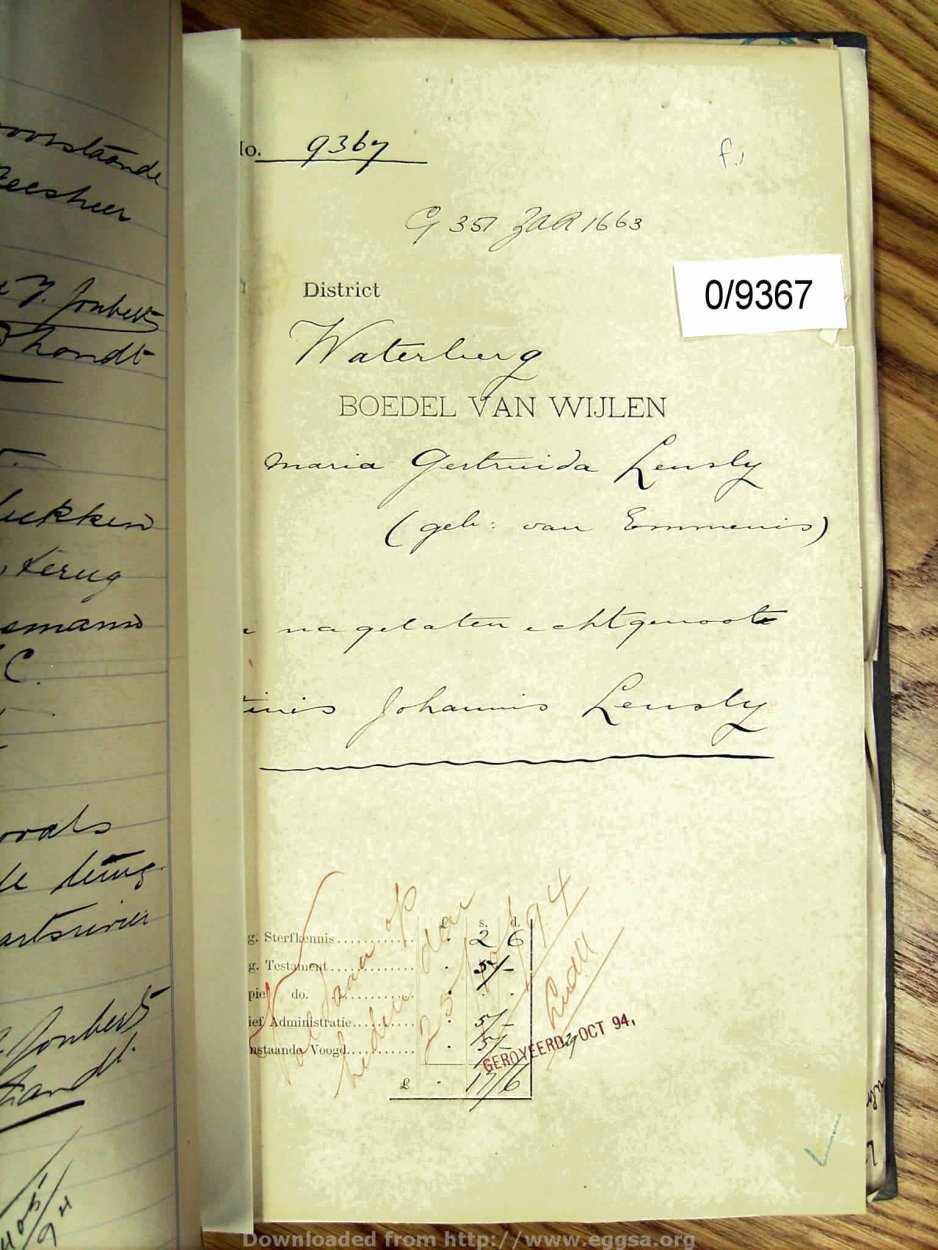 oorstaande
eesheer
Joubert
hondt
ukken
, terug
smann
C.
orals
le
artsrivier
Joubert
lo. 9367
f1
G 351 ZAR 1663
0/9367
District
Waterberg
BOEDEL VAN WIJLEN
Maria Gertruida Lensly
(geb: van Emmenis)
nagelaten echtgenoote
Johannis Lensly
£ s. d.
g. Sterfkennis............ 2 6
g. Testament............ 5/-
pie do. ............
ief Administratie............ 5/-
nstaande Voogd............ 5/-
£ 17/6
Voldaan op
heden
GEROYEERD OCT 94,
Downloaded from http://www.eggsa.org